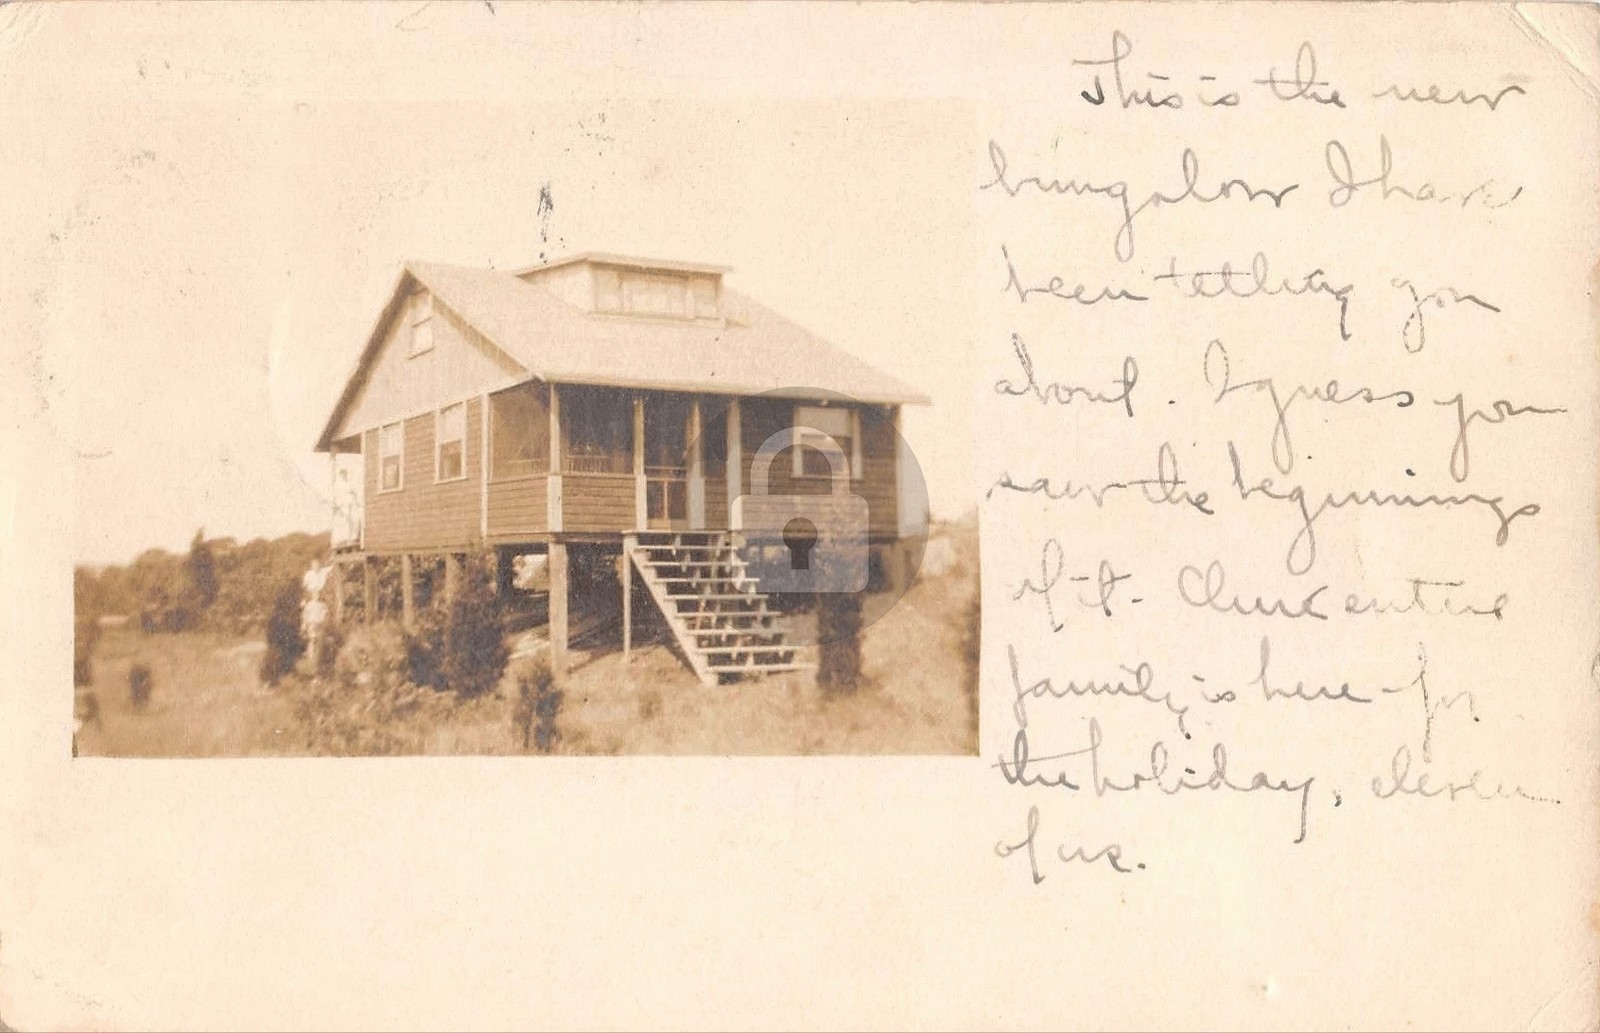 This is the new
bungalow I have
been telling you
about. I guess you
saw the beginnings
of it. Our entire
family is here for
the holiday, eleven
of us.